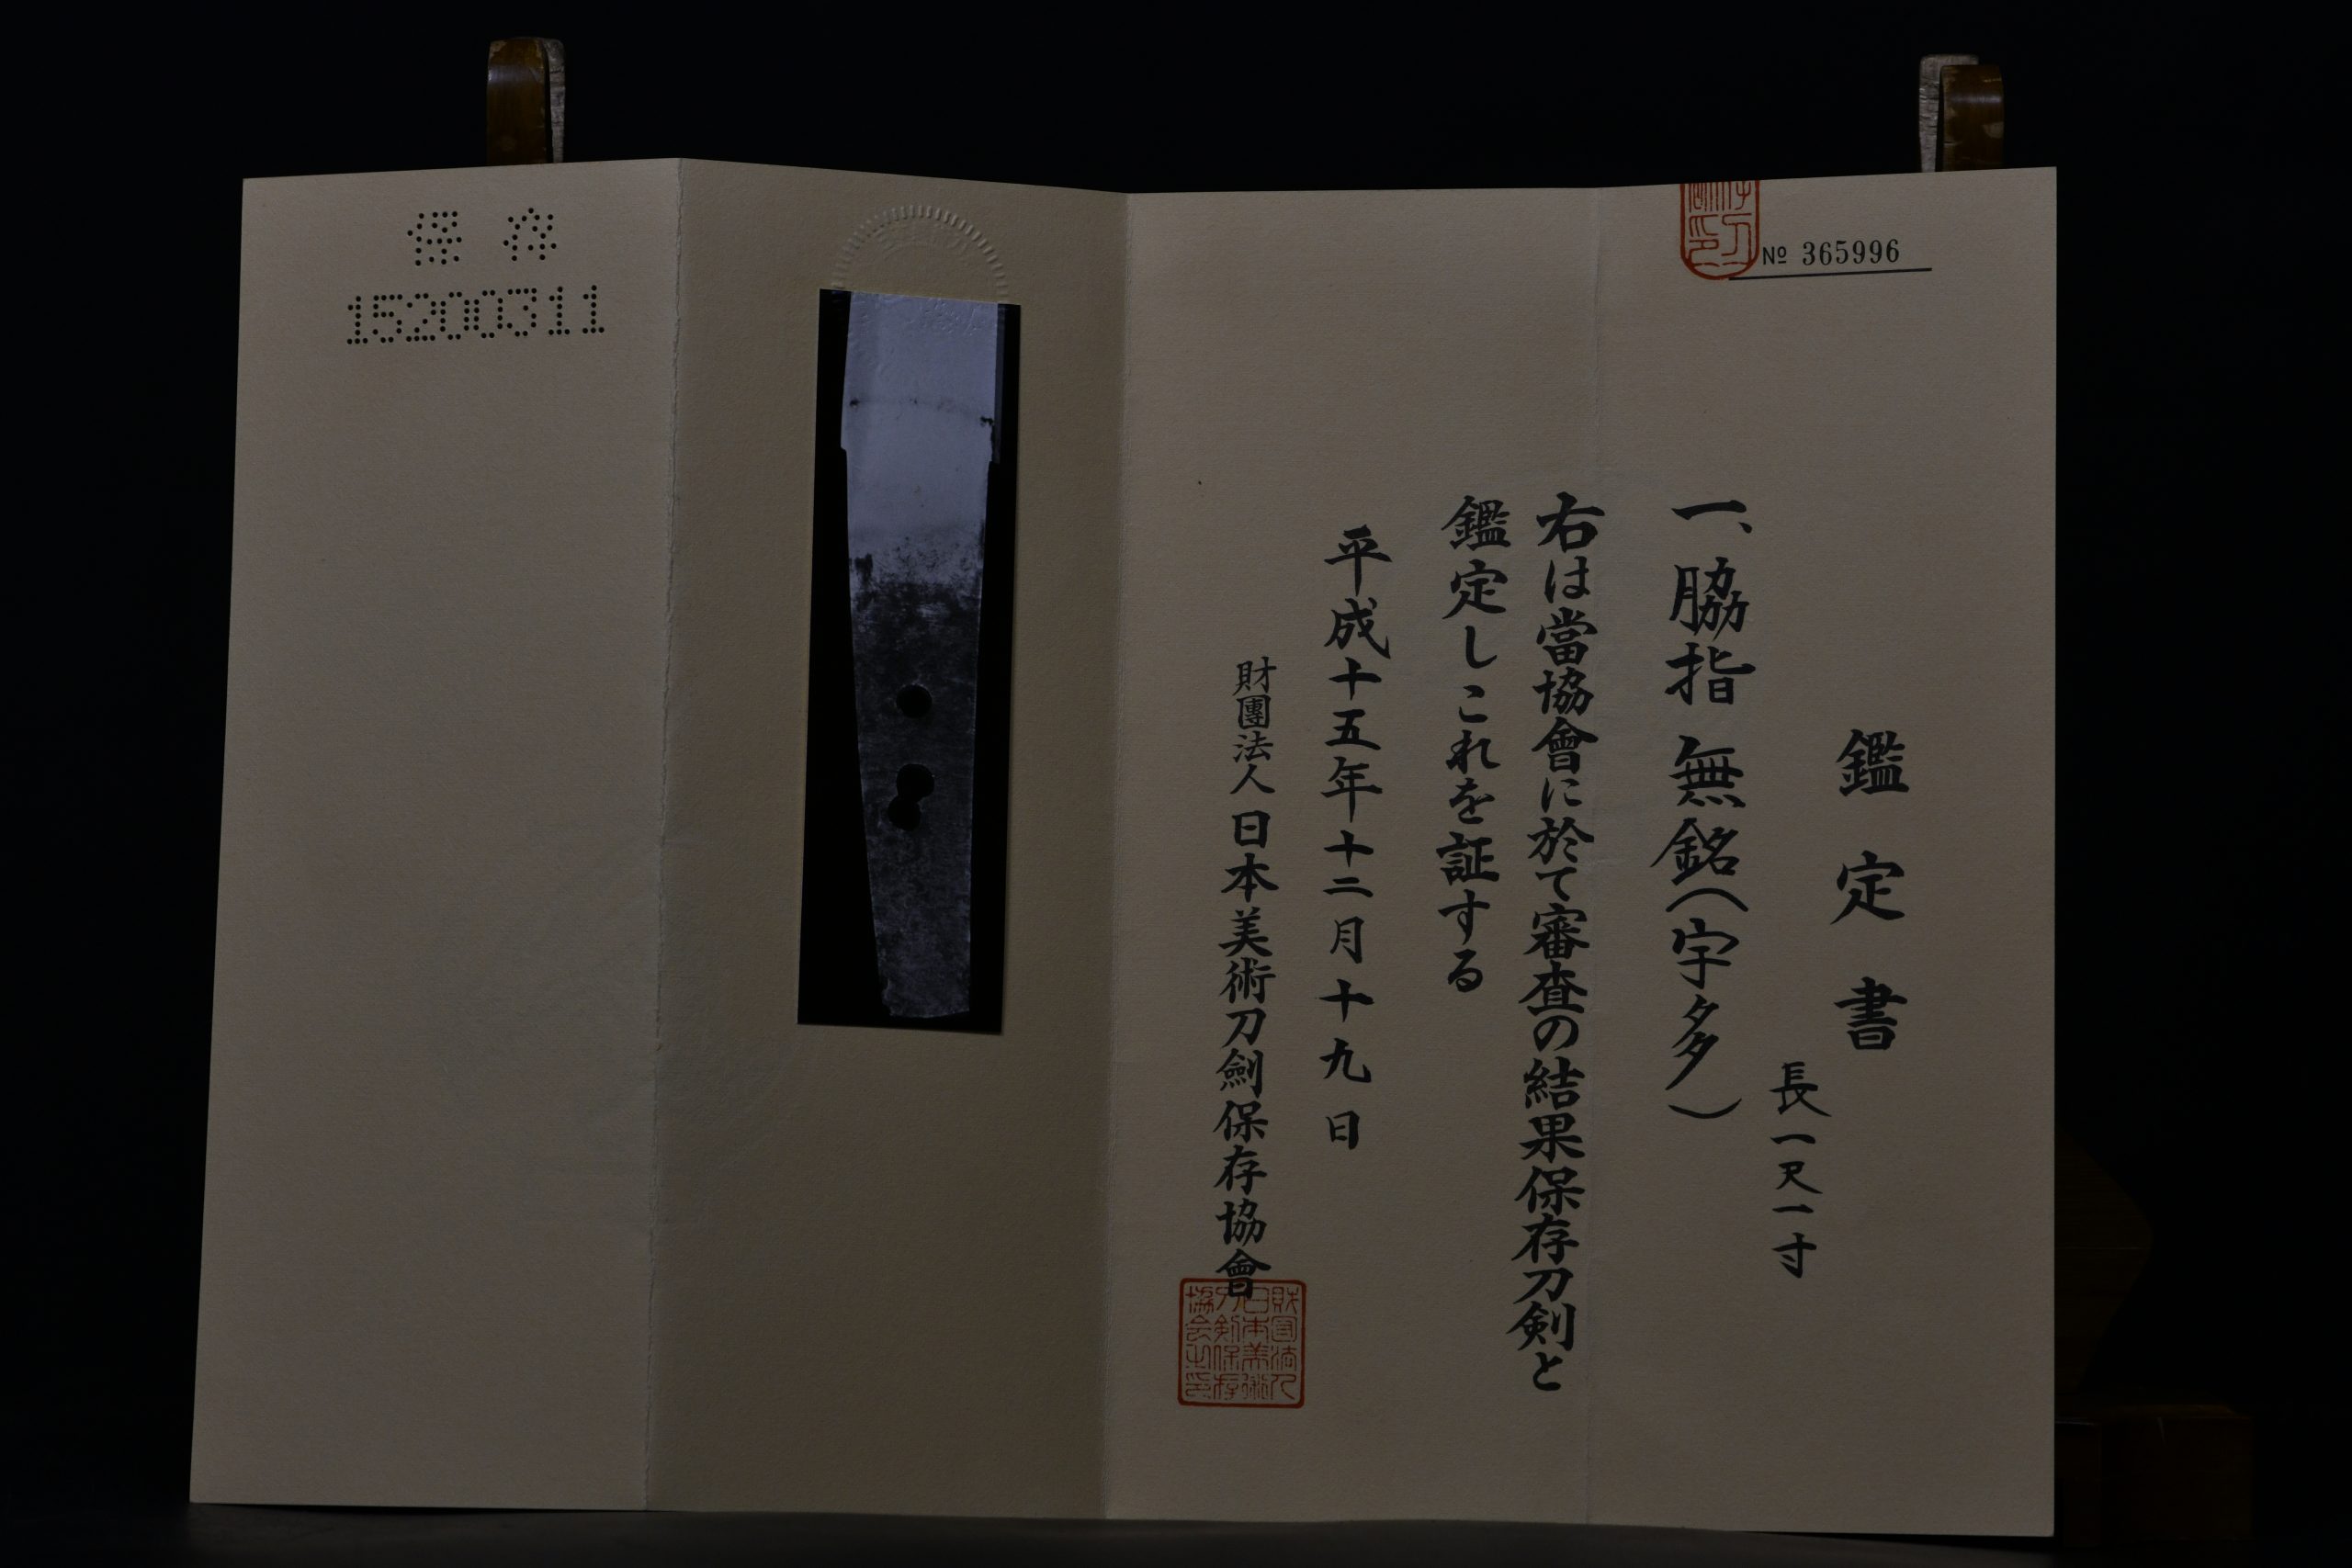 № 365996
鑑定書
長一尺一寸
一、脇指 無銘(宇多)
右は當協會に於て審査の結果保存刀剣と
鑑定しこれを証する
平成十五年十二月十九日
財團法人日本美術刀劍保存協會
財団法人
日本美術
刀剣保存
協会之印
保存
15200311